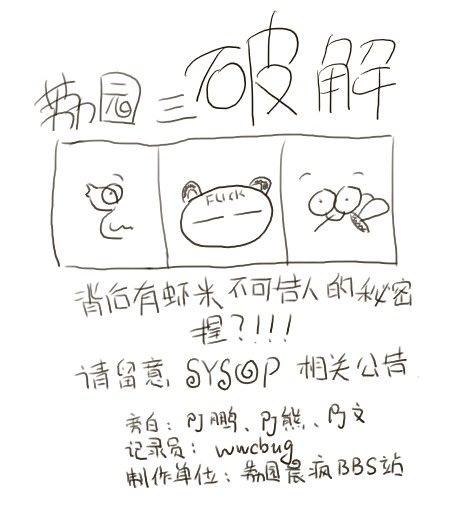 荔园三破解
FLICK
背后有虾米不可告人的秘密
捏?!!!
请留意 SYSOP 相关公告
旁白:阿鹏、阿熊、阿文
记录员:wwcbug
制作单位:荔园晨疯BBS站